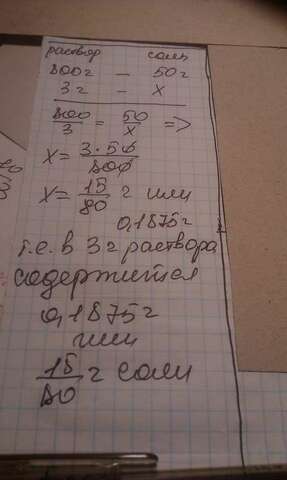 раствор соли
800г - 50г
3г - х
800/3 = 50/х =>
х = 3·50/800
х = 15/80 г или
0,1875г
т.е. в 3г раствора
содержится
0,1875г
или
15/80 г соли